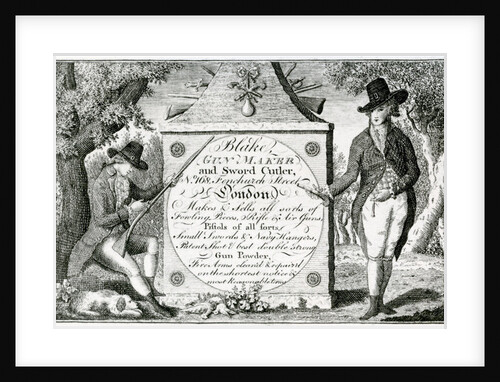 Blake
GUN MAKER
and Sword Cutler,
No. 168, Fenchurch Street
London
Makes & Sells all sorts of
Fowling Pieces, Rifle & Air Guns,
Pistols of all sorts
Small Swords & Navy Hangers,
Patent Shot & best double Strong
Gun Powder,
Fire Arms clean'd & repair'd
on the shortest notice &
most Reasonable terms